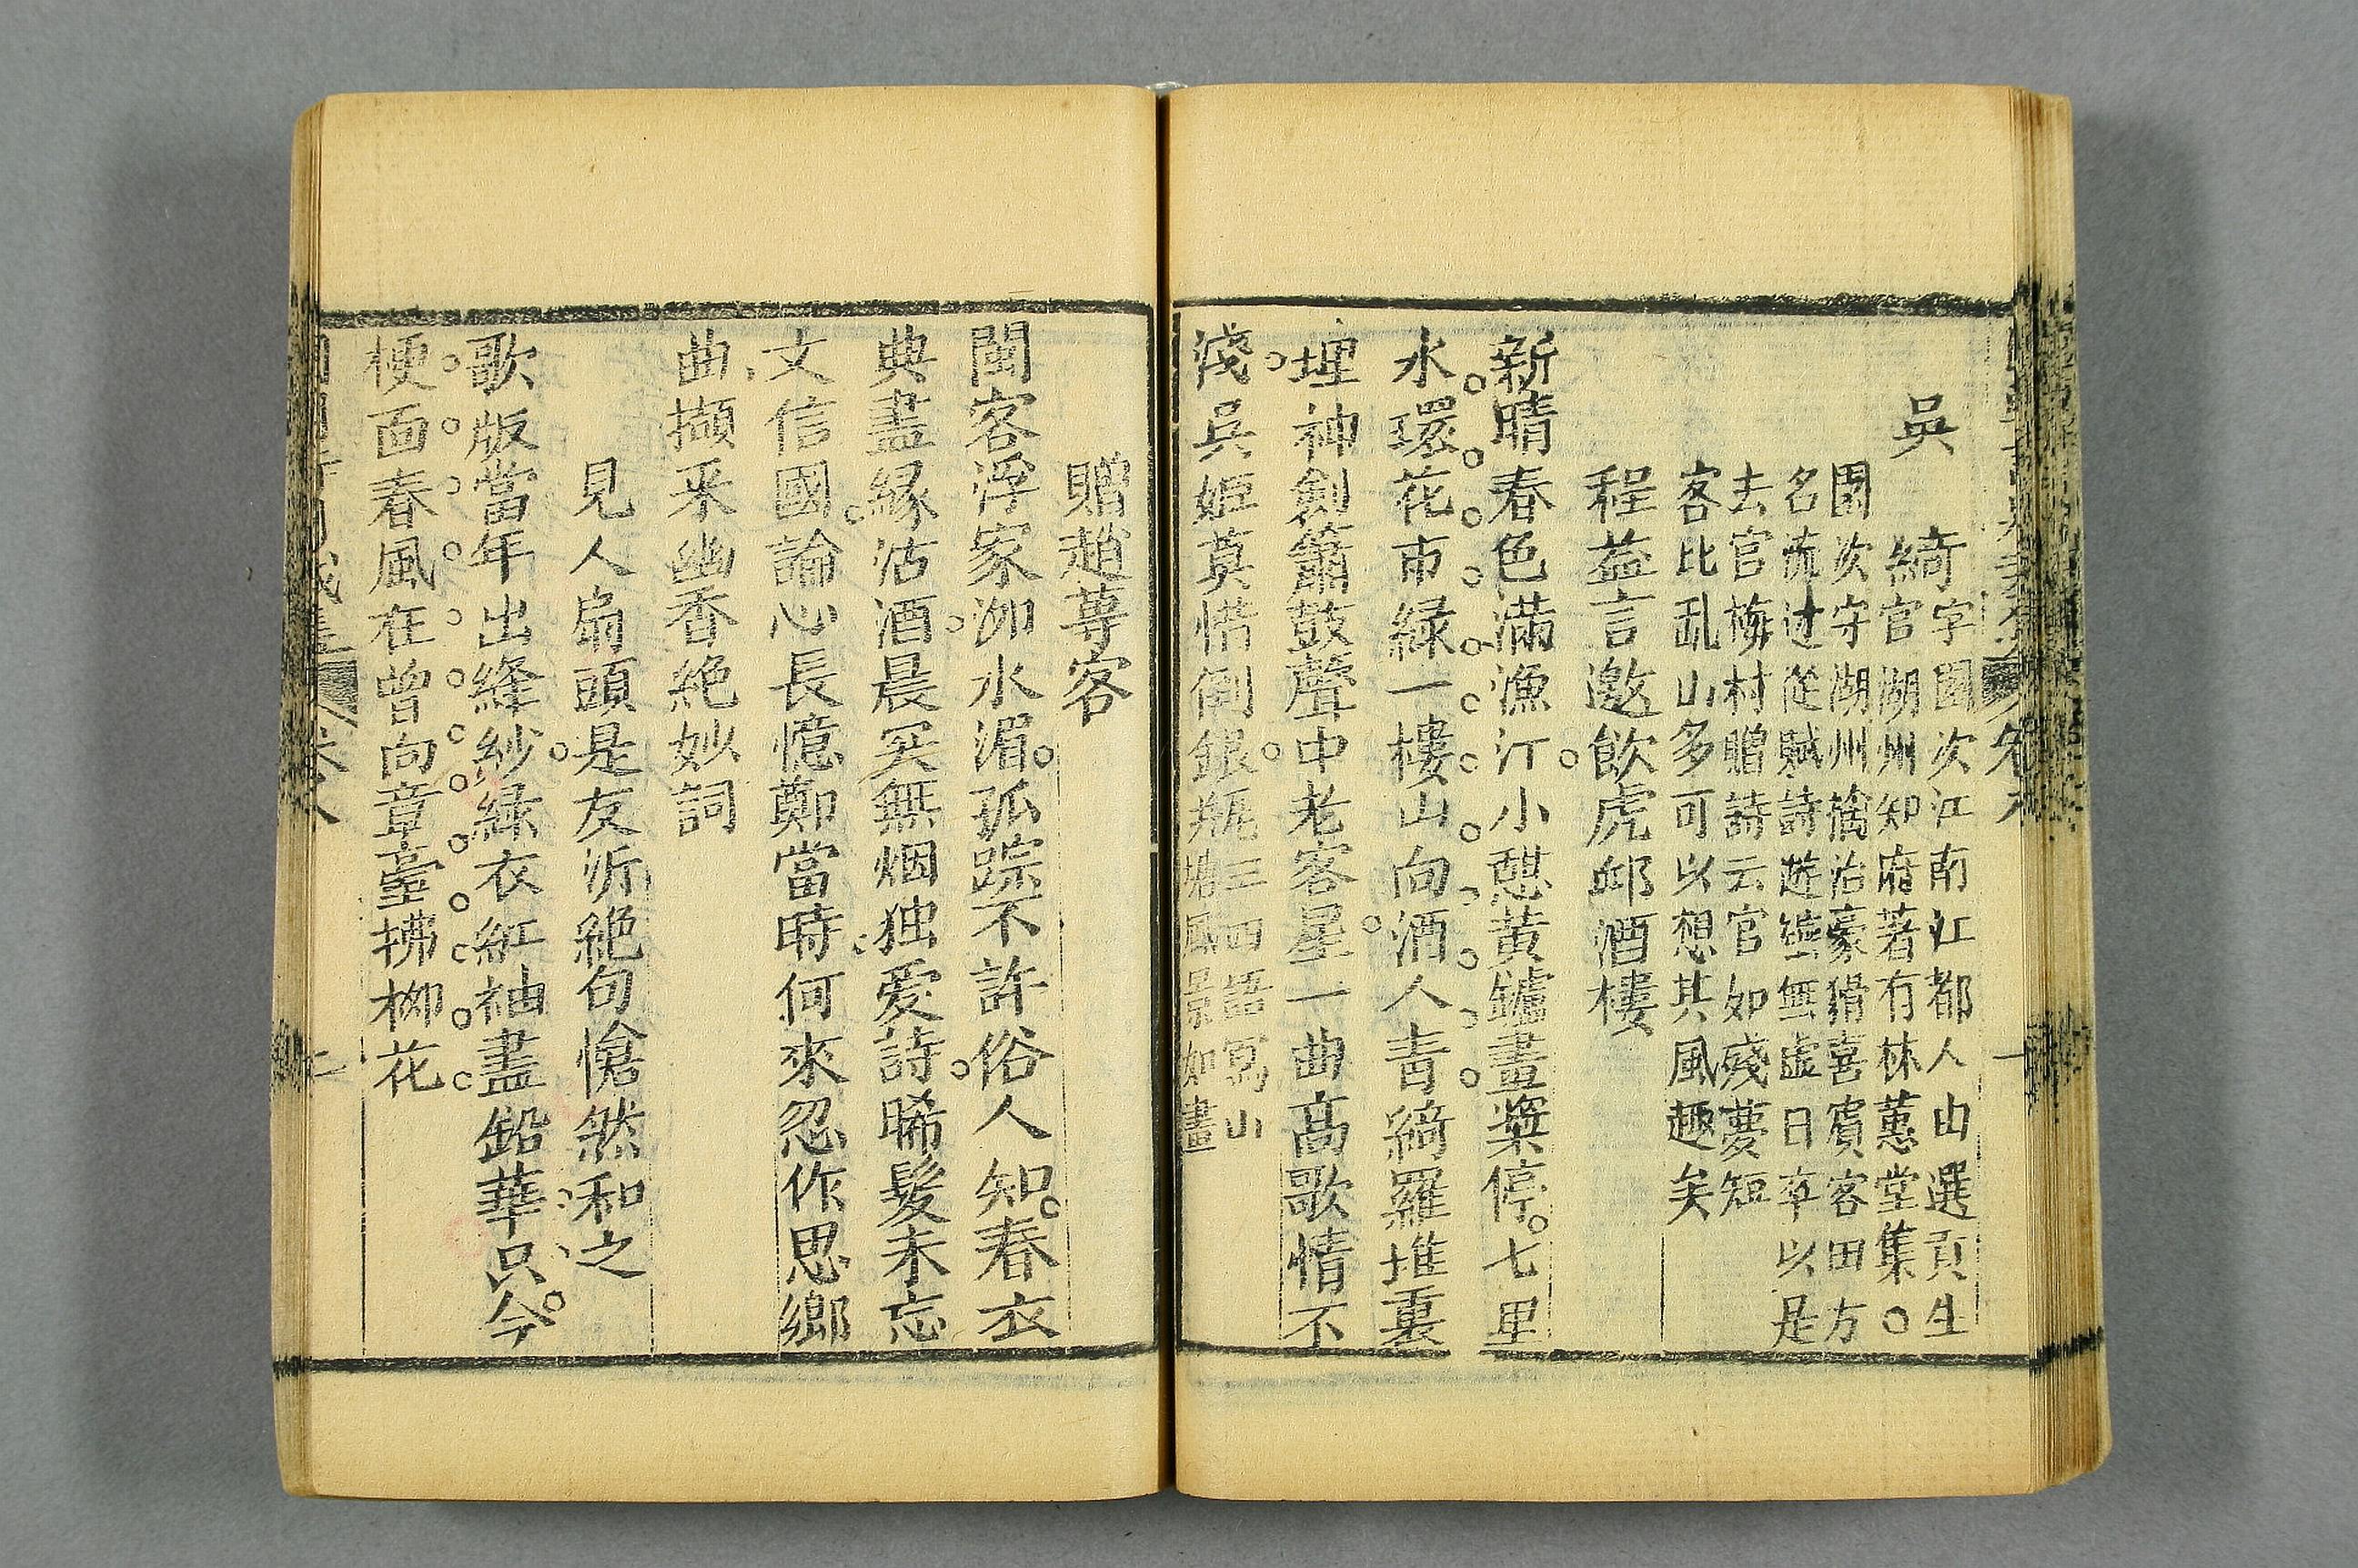 吳　綺字園次江南江都人由選貢生
官湖州知府著有林蕙堂集○
園次守湖州擒治豪猾喜賓客田方
名流过從賦詩遊讌無虚日卒以是
去官梅村贈詩云官如殘夢短
客比乱山多可以想其風趣矣
程益言邀飲虎邱酒樓
新晴春色滿漁汀小憇黄罏畫槳停七里
水環花市緑一樓山向酒人青綺羅堆裏
埋神劍簫鼓聲中老客星一曲高歌情不
淺吳姬莫惜倒銀瓶三四語寫山
塘風景如畫
贈趙尊客
閩客浮家泖水湄孤踪不許俗人知春衣
典盡緑沽酒晨㸑無烟独爱詩晞髮未忘
文信國論心長憶鄭當時何來忽作思鄉
曲擷釆幽香絶妙詞
見人扇頭是友沂絶句愴然和之
歌版當年出絳紗緑衣紅袖盡鉛華只今
梗面春風在曾向章臺拂柳花